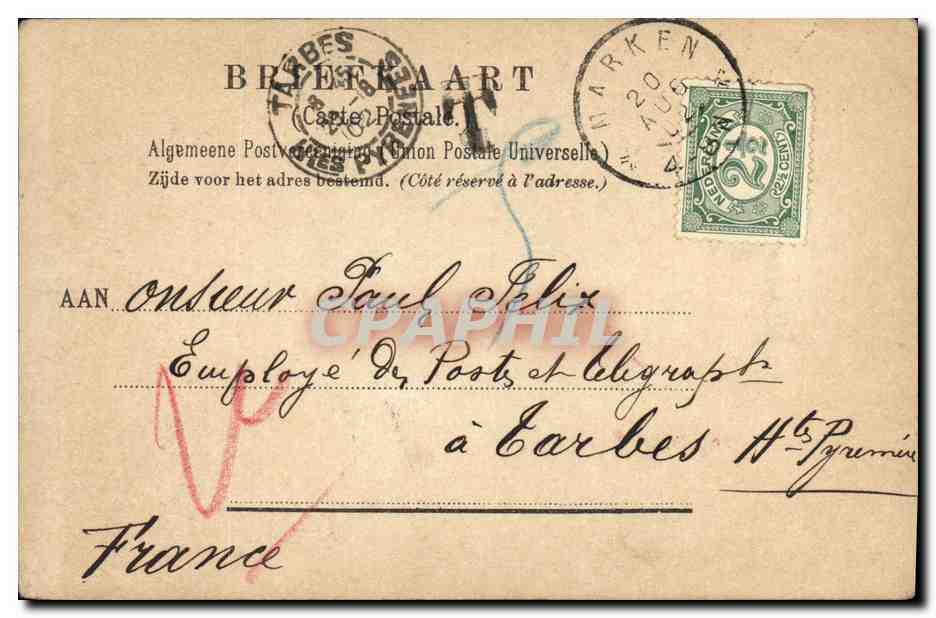 BRIEFKAART
(Carte Postale.)
Algemeene Postvereeniging (Union Postale Universelle)
Zijde voor het adres bestemd. (Côté réservé à l'adresse.)
TARBES
HTES PYRENEES
T
MARKEN
20
AUG
NEDERLAND
2½
(2½ CENT)
AAN onsieur Paul Felix
CPAPHIL
Employé des Postes et télégraphes
à Tarbes Htes Pyrénées
France